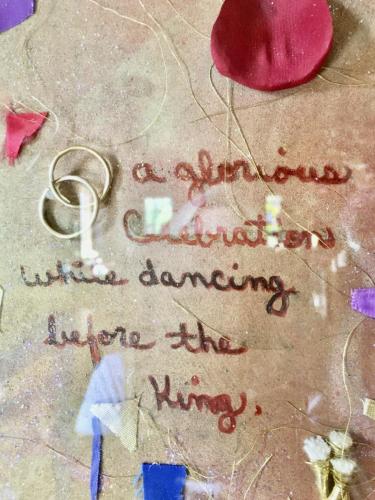 a glorious
Celebration
while dancing
before the
King.